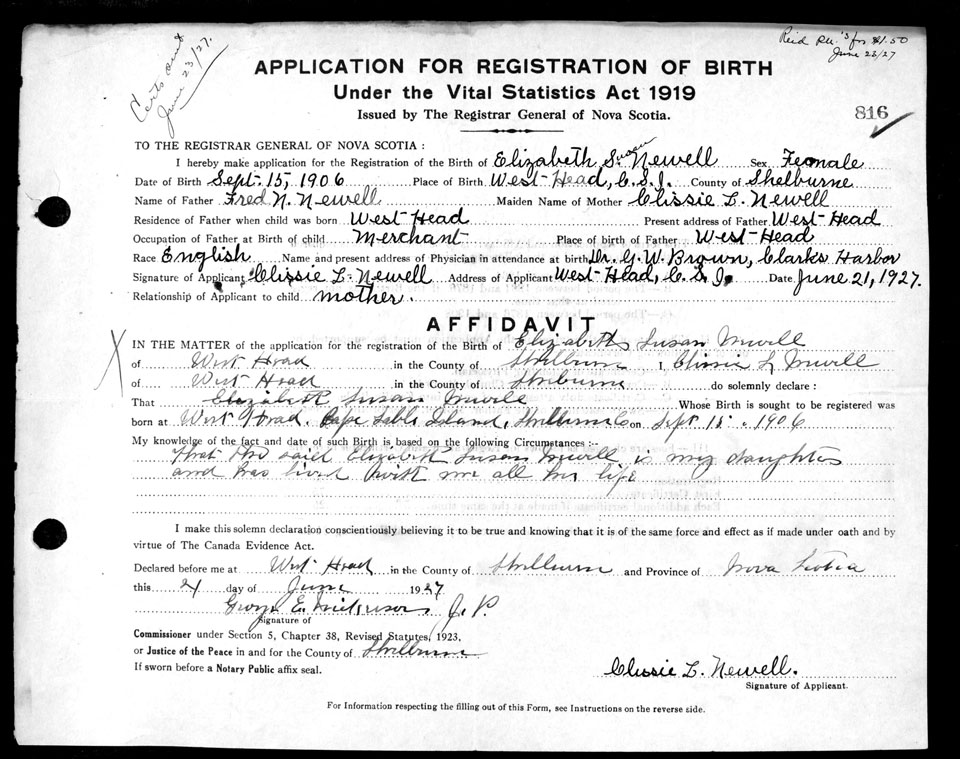 Certs sent
June 23/27.
Recd for $1.50
June 23/27
APPLICATION FOR REGISTRATION OF BIRTH
Under the Vital Statistics Act 1919
Issued by The Registrar General of Nova Scotia.
816
TO THE REGISTRAR GENERAL OF NOVA SCOTIA :
I hereby make application for the Registration of the Birth of Elizabeth Susan Newell Sex Female
Date of Birth Sept. 15, 1906 Place of Birth West-Head, C.S.I. County of Shelburne
Name of Father Fred N. Newell Maiden Name of Mother Clissie L. Newell
Residence of Father when child was born West-Head Present address of Father West-Head
Occupation of Father at Birth of child Merchant Place of birth of Father West-Head
Race English Name and present address of Physician in attendance at birth Dr. G. W. Brown, Clarks Harbor
Signature of Applicant Clissie L. Newell Address of Applicant West-Head, C.S.I. Date June 21, 1927.
Relationship of Applicant to child mother.
AFFIDAVIT
X
IN THE MATTER of the application for the registration of the Birth of Elizabeth Susan Newell
of West Head in the County of Shelburne I, Clissie L Newell
of West Head in the County of Shelburne do solemnly declare :
That Elizabeth Susan Newell Whose Birth is sought to be registered was
born at West Head, Cape Sable Island, Shelburne Co on Sept 15. 1906
My knowledge of the fact and date of such Birth is based on the following Circumstances :--
That the said Elizabeth Susan Newell is my daughter
and has lived with me all her life
I make this solemn declaration conscientiously believing it to be true and knowing that it is of the same force and effect as if made under oath and by
virtue of The Canada Evidence Act.
Declared before me at West Head in the County of Shelburne and Province of Nova Scotia
this 21 day of June 1927
George E. J. P.
Signature of
Commissioner under Section 5, Chapter 38, Revised Statutes, 1923,
or Justice of the Peace in and for the County of Shelburne
If sworn before a Notary Public affix seal.
Clissie L. Newell.
Signature of Applicant.
For Information respecting the filling out of this Form, see Instructions on the reverse side.